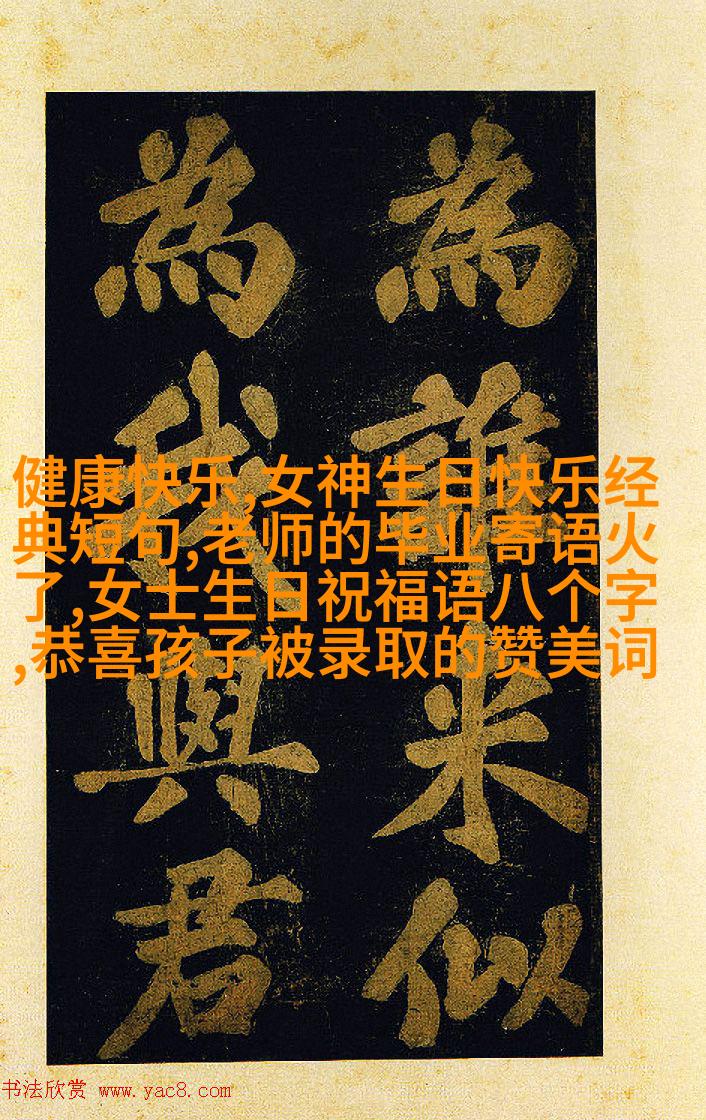 為誰米似
為我與君
健康快乐,女神生日快乐经
典短句,老师的毕业寄语火
了,女士生日祝福语八个字
,恭喜孩子被录取的赞美词
书法欣赏 www.yac8.com